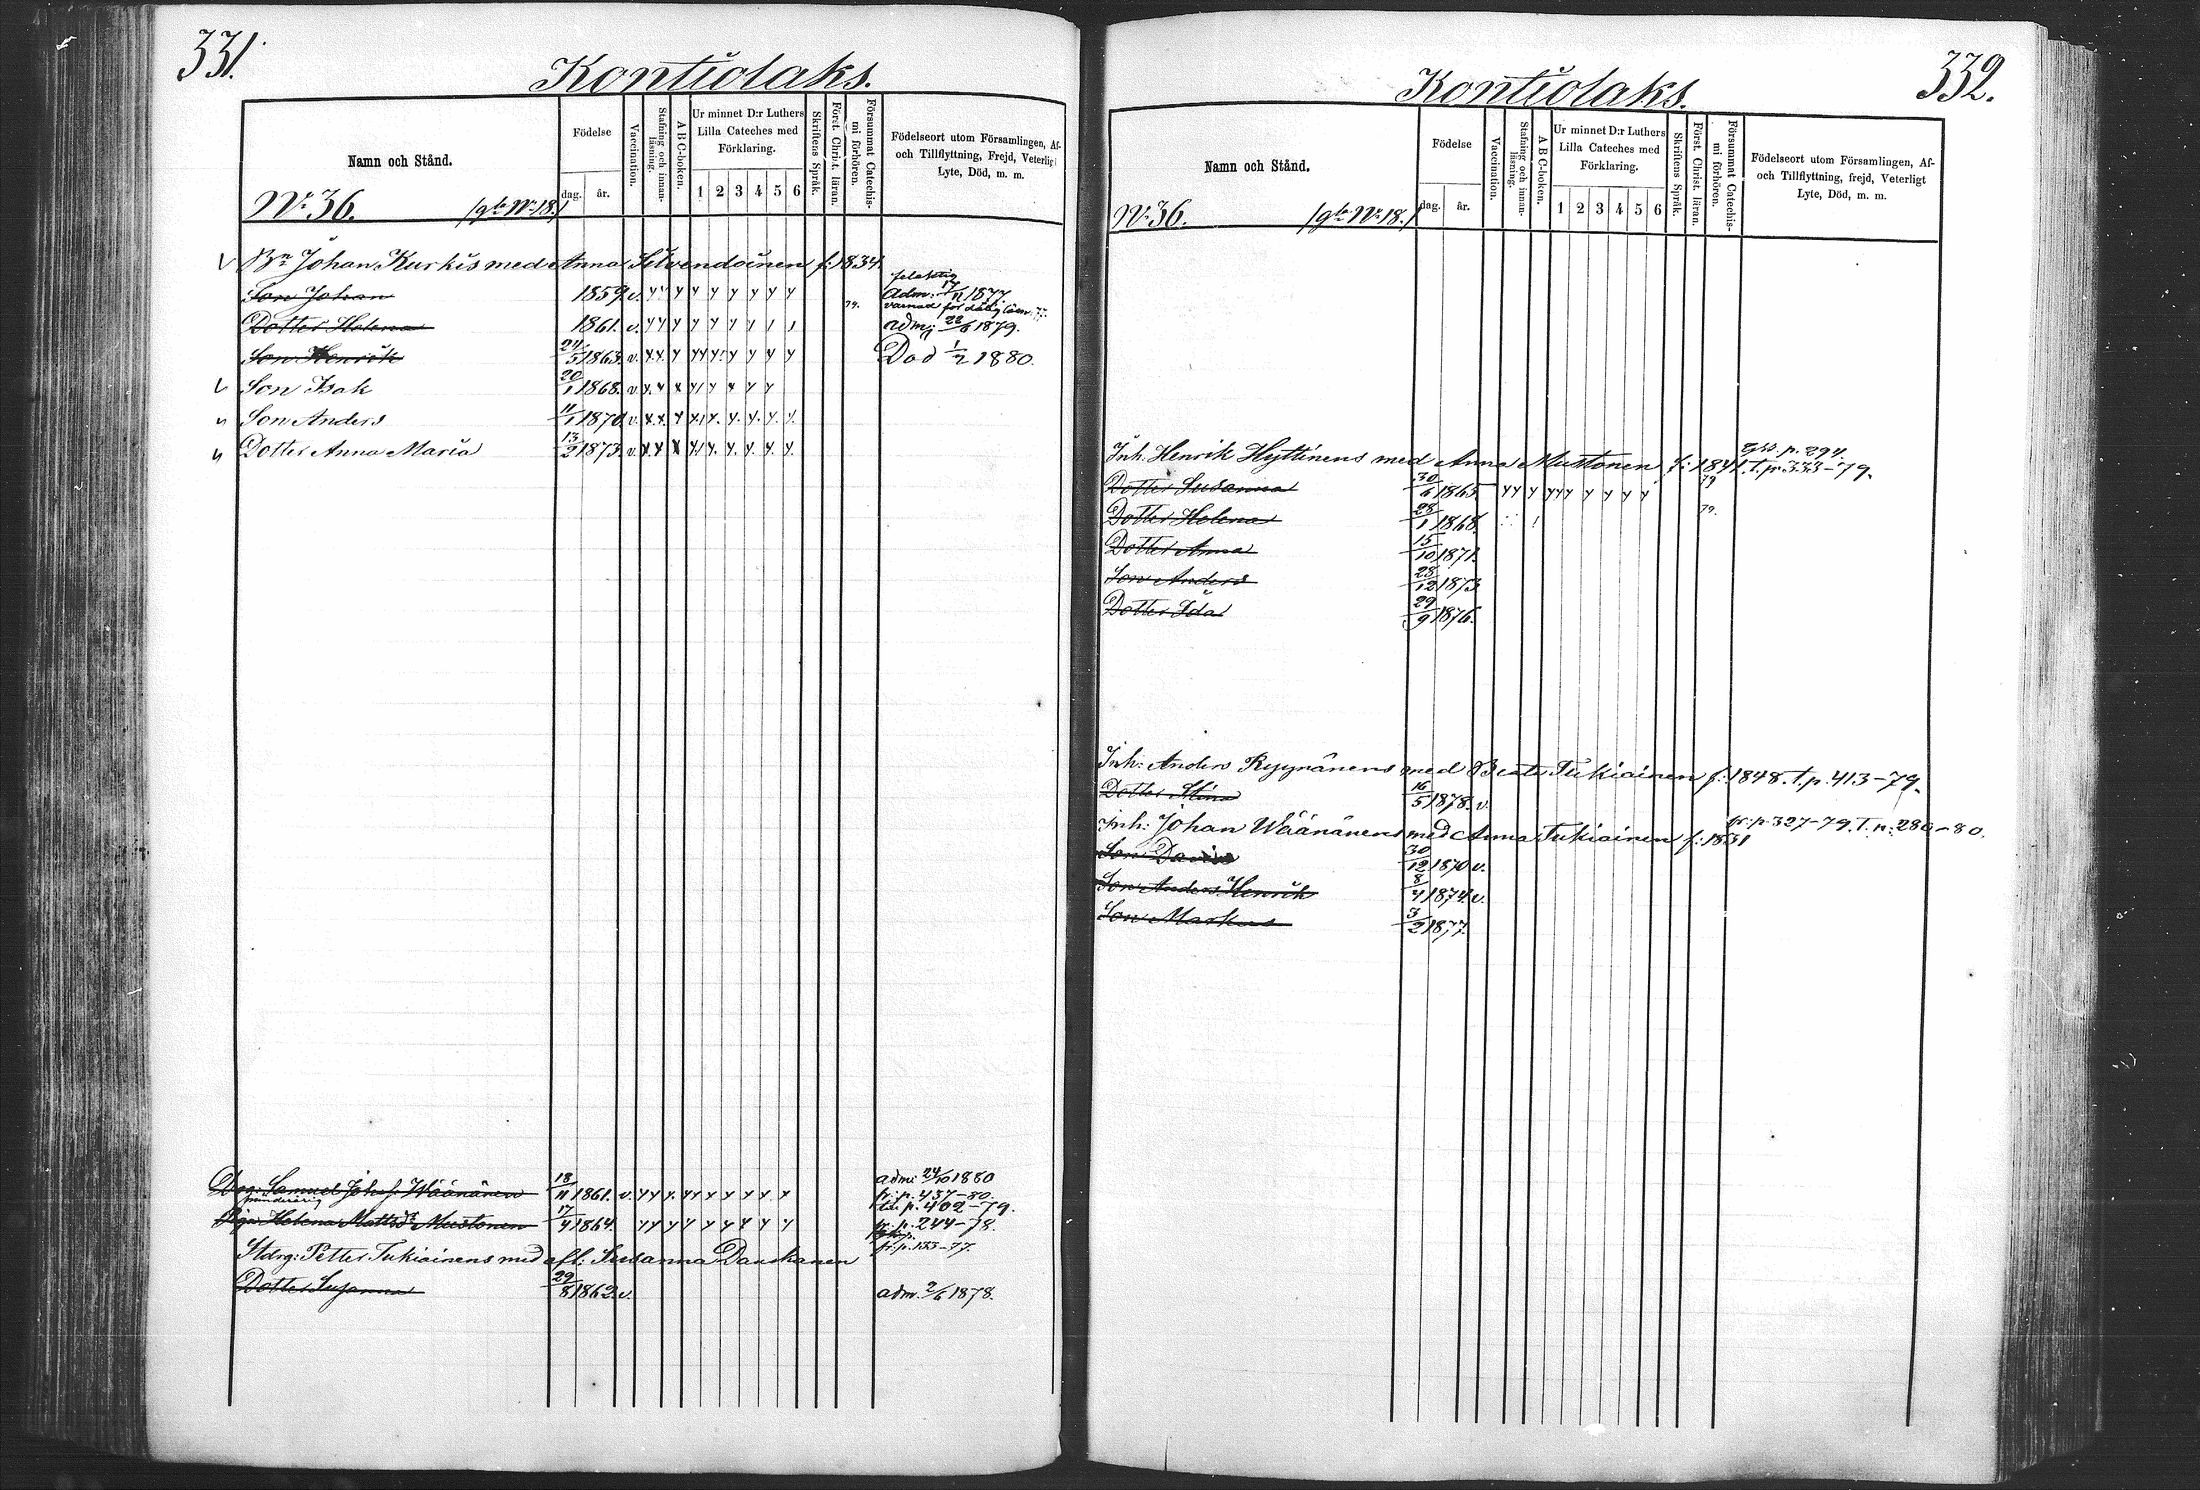 331.
Kontiolaks.
Namn och Stånd.
Födelse
dag. år.
Vaccination.
Stafning och innan-läsning.
A B C-boken.
Ur minnet D:r Luthers Lilla Cateches med Förklaring.
1 2 3 4 5 6
Skriftens Språk.
Först. Christ. läran.
Försummat Catechis-mi förhören.
Födelseort utom Församlingen, Af-
och Tillflyttning, Frejd, Veterligt
Lyte, Död, m. m.
No 36. /gla No 18./
Bn Johan Kurkis med Anna Silvendoinen f: 1834.
Son Johan 1859 v. adm: 17/11 1877.
79. varnad för dålig läsn.
Dotter Helena 1861. v. adm: 22/6 1879.
Son Henrik 24/5 1863. v. Död 1/2 1880.
Son Isak 20/1 1868. v.
Son Anders 11/1 1870 v.
Dotter Anna Maria 13/2 1873. v.
Drg: Samuel Johs. Wäänänen 18/11 1861. v. adm: 24/10 1880
fr: p. 437-80.
till p. 402-79.
Pig: Helena Mattsdr Mustonen 17/4 1864. fr. p. 244-78.
fr: p. 133-77.
Stdrg: Petter Tukiainens med afl: Susanna Danskanen
Dotter Susanna 29/8 1862. v. adm. 2/6 1878.
332.
Kontiolaks.
Namn och Stånd.
Födelse
dag. år.
Vaccination.
Stafning och innan-läsning.
A B C-boken.
Ur minnet D:r Luthers Lilla Cateches med Förklaring.
1 2 3 4 5 6
Skriftens Språk.
Först. Christ. läran.
Försummat Catechis-mi förhören.
Födelseort utom Församlingen, Af-
och Tillflyttning, frejd, Veterligt
Lyte, Död, m. m.
No 36. /gla No 18./
p. 294.
Inh. Henrik Hyttinens med Anna Mustonen f: 1841. t. p. 333-79.
Dotter Susanna 30/6 1865 79
Dotter Helena 28/1 1868. 79.
Dotter Anna 15/10 1871.
Son Anders 28/12 1873
Dotter Ida 29/9 1876.
Inh: Anders Ryynänens med Beata Tukiainen f: 1848. t. p. 413-79.
Dotter Stina 16/5 1878. v.
fr: p. 327-79. T. p: 280-80.
Inh: Johan Wäänänens med Anna Tukiainen f: 1831
Son David 30/12 1870 v.
Son Anders Henrik 8/4 1874 v.
Son Markus 3/2 1877.